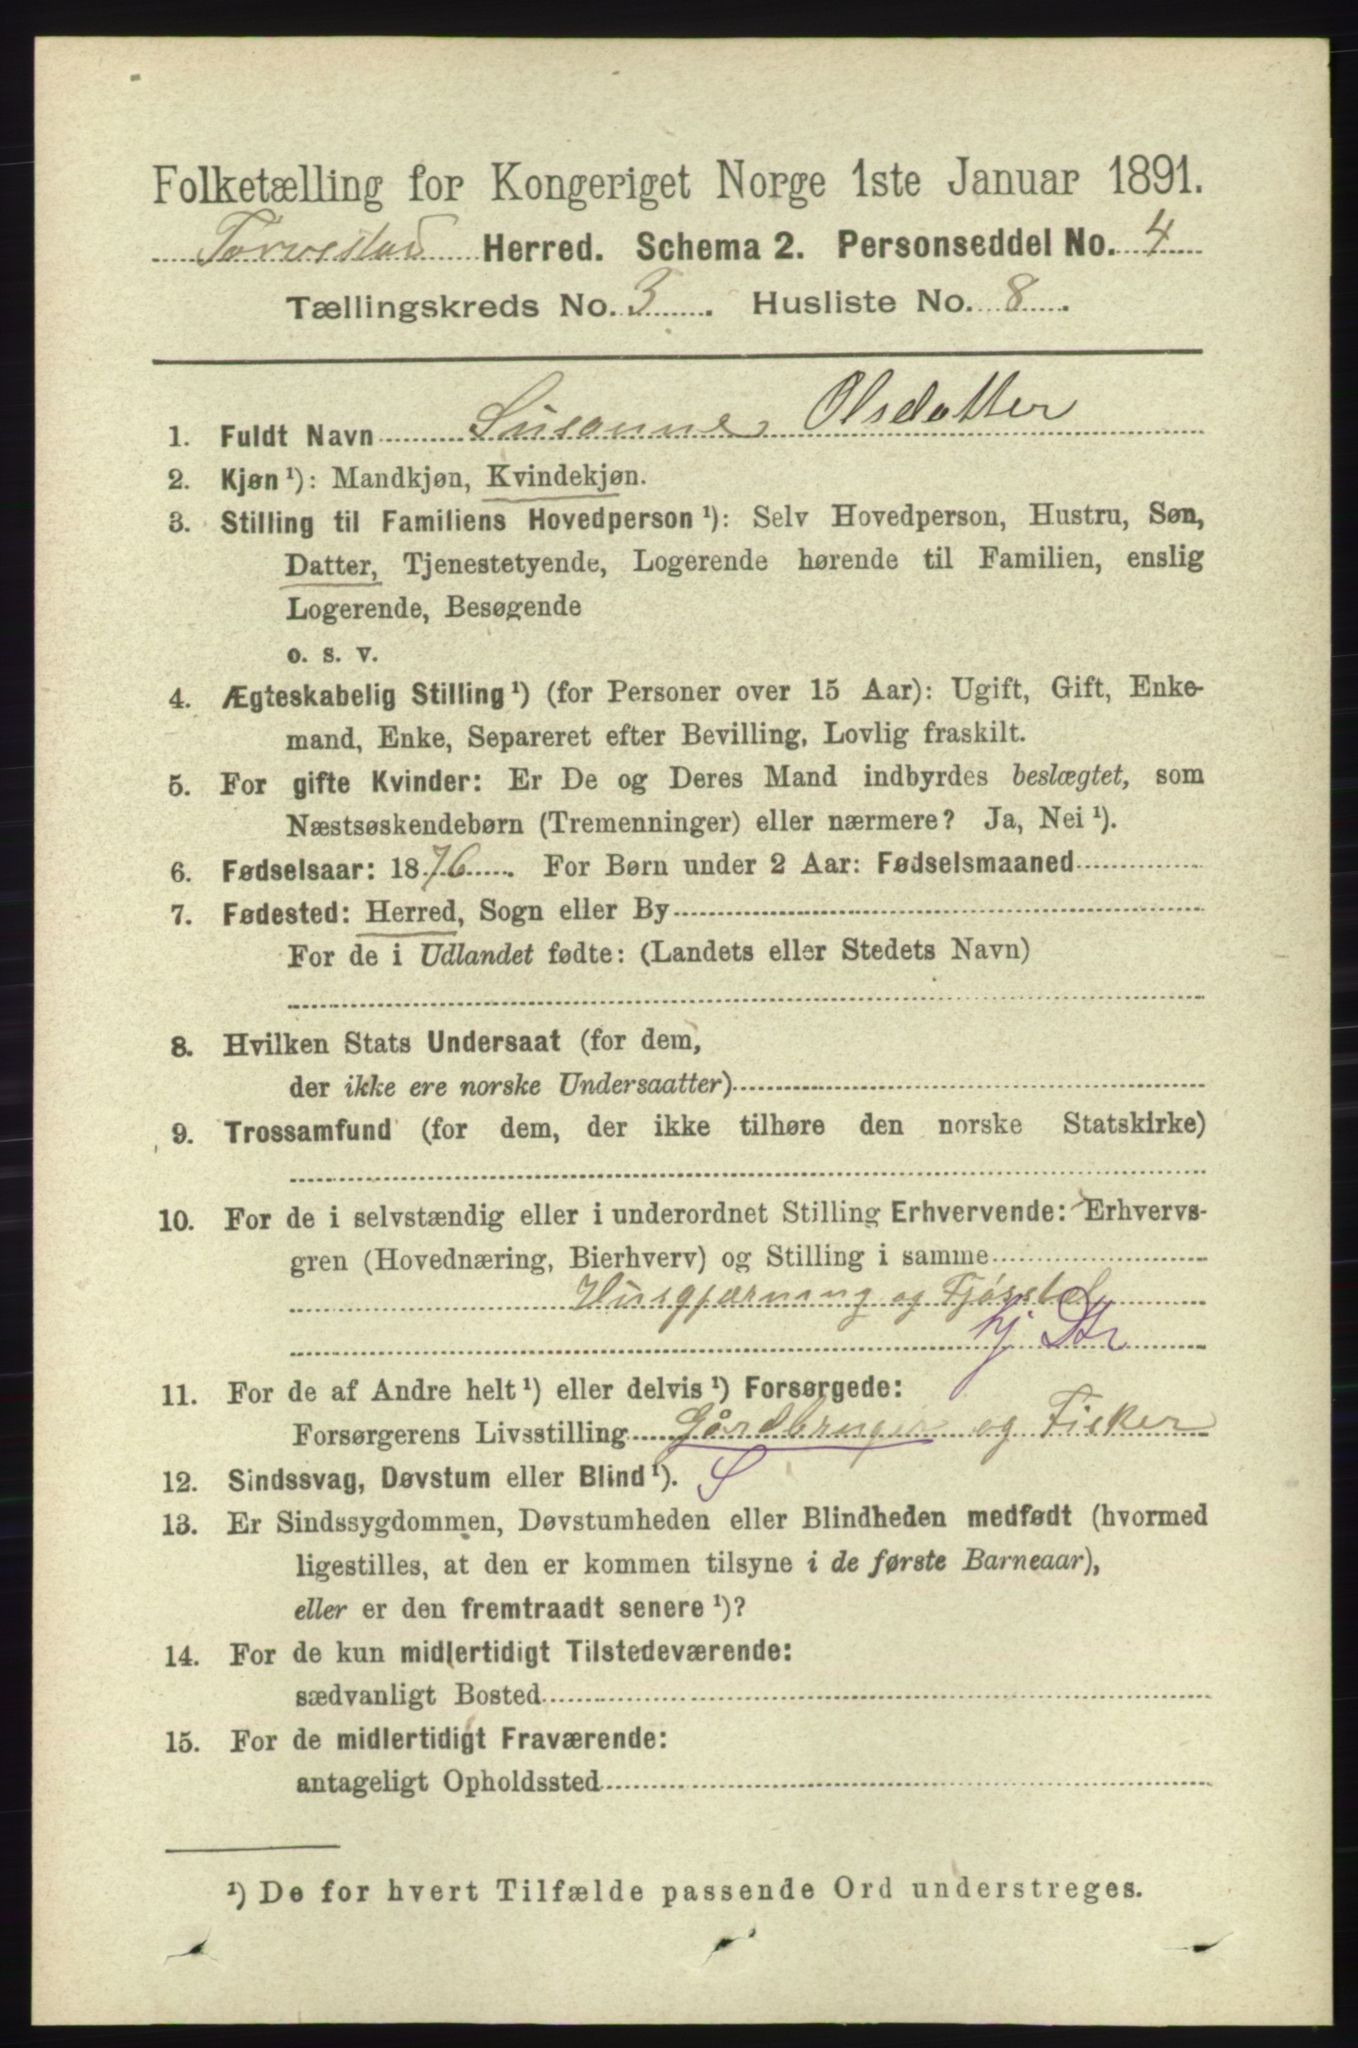 Folketælling for Kongeriget Norge 1ste Januar 1891.
Torvestad Herred. Schema 2. Personseddel No. 4
Tællingskreds No. 3. Husliste No. 8.
1. Fuldt Navn Susanne Olsdatter
2. Kjøn¹): Mandkjøn, Kvindekjøn.
3. Stilling til Familiens Hovedperson¹): Selv Hovedperson, Hustru, Søn,
Datter, Tjenestetyende, Logerende hørende til Familien, enslig
Logerende, Besøgende
o. s. v.
4. Ægteskabelig Stilling¹) (for Personer over 15 Aar): Ugift, Gift, Enke-
mand, Enke, Separeret efter Bevilling, Lovlig fraskilt.
5. For gifte Kvinder: Er De og Deres Mand indbyrdes beslægtet, som
Næstsøskendebørn (Tremenninger) eller nærmere? Ja, Nei¹).
6. Fødselsaar: 1876. For Børn under 2 Aar: Fødselsmaaned
7. Fødested: Herred, Sogn eller By
For de i Udlandet fødte: (Landets eller Stedets Navn)
8. Hvilken Stats Undersaat (for dem,
der ikke ere norske Undersaatter)
9. Trossamfund (for dem, der ikke tilhøre den norske Statskirke)
10. For de i selvstændig eller i underordnet Stilling Erhvervende: Erhvervs-
gren (Hovednæring, Bierhverv) og Stilling i samme
Husgjærning og Fjøsstel
hj Dtr
11. For de af Andre helt¹) eller delvis¹) Forsørgede:
Forsørgerens Livsstilling Gårdbruger og Fisker
12. Sindssvag, Døvstum eller Blind¹). S
13. Er Sindssygdommen, Døvstumheden eller Blindheden medfødt (hvormed
ligestilles, at den er kommen tilsyne i de første Barneaar),
eller er den fremtraadt senere¹)?
14. For de kun midlertidigt Tilstedeværende:
sædvanligt Bosted
15. For de midlertidigt Fraværende:
antageligt Opholdssted
¹) De for hvert Tilfælde passende Ord understreges.